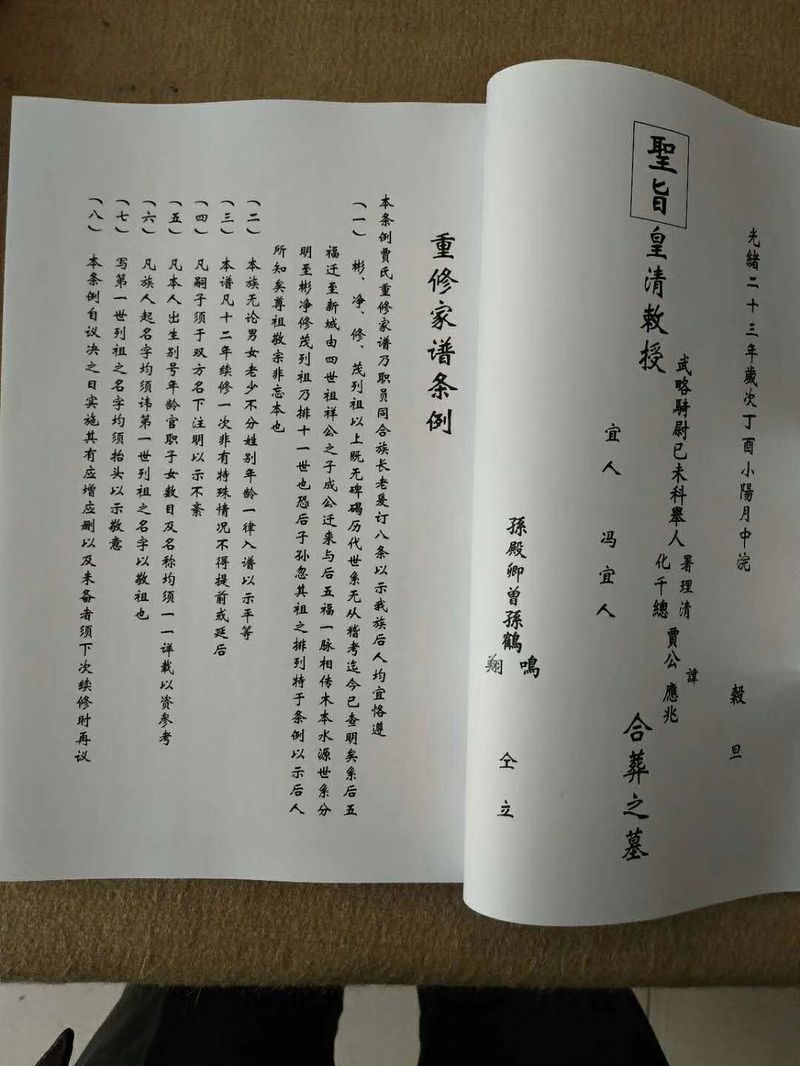 光緒二十三年歲次丁酉小陽月中浣 穀旦
聖旨 皇清敕授 武略騎尉己未科舉人 署理清化千總 賈公 諱 應兆 合葬之墓
宜人 冯宜人
孫殿卿曾孫鶴鳴翔 仝立
重修家谱条例
本条例贾氏重修家谱乃职员同合族长老爰订八条以示我族后人均宜恪遵
（一） 彬、净、修、茂列祖以上既无碑碣历代世系无从稽考迄今已查明矣系后五
福迁至新城由四世祖祥公之子成公迁来与后五福一脉相传木本水源世系分
明至彬净修茂列祖乃排十一世也恐后子孙忽其祖之排列特于条例以示后人
所知矣尊祖敬宗非忘本也
（二） 本族无论男女老少不分姓别年龄一律入谱以示平等
（三） 本谱凡十二年续修一次非有特殊情况不得提前或延后
（四） 凡嗣子须于双方名下注明以示不紊
（五） 凡本人出生别号年龄官职子女数目及名称均须一一详载以资参考
（六） 凡族人起名字均须讳第一世列祖之名字以敬祖也
（七） 写第一世列祖之名字均须抬头以示敬意
（八） 本条例自议决之日实施其有应增应删以及未备者须下次续修时再议